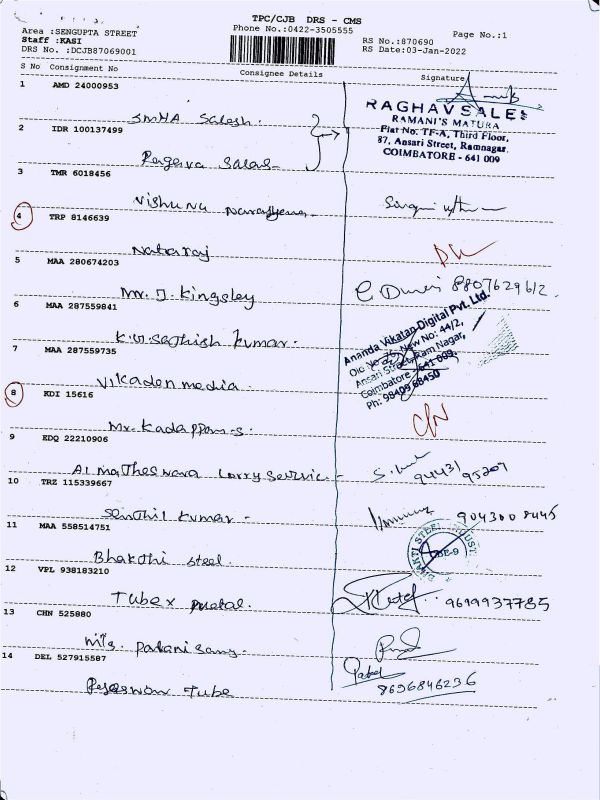 TPC/CJB DRS - CMS
Area :SENGUPTA STREET Phone No.:0422-3505555 Page No.:1
Staff :KASI RS No.:870690
DRS No. :DCJB87069001 RS Date:03-Jan-2022
S No Consignment No Consignee Details Signature
1 AMD 24000953
RAGHAV SALES
RAMANI'S MATURA
Flat No. TF-A, Third Floor,
87, Ansari Street, Ramnagar.
COIMBATORE - 641 009
SMHA Salesh.
2 IDR 100137499
Ragava Sales
3 TMR 6018456
Vishunu
4 TRP 8146639
Nataraj
5 MAA 280674203
Mr. J. Kingsley 8807629612.
6 MAA 287559841
Ananda Vikatan Digital Pvt. Ltd.
New No: 44/2,
Ansari Street, Ram Nagar,
Coimbatore - 641 009.
Ph: 98409 68450
K.W. Sathish Kumar.
7 MAA 287559735
Vikaden media
8 KDI 15616
Mr. Kadappam-S.
9 EDQ 22210906
Al Matheswara Lorry Service 94431 95209
10 TRZ 115339667
Senthil Kumar 904300 8445
11 MAA 558514751
BHAKTI STEEL INDUST
CBE-9
Bhakthi steel.
12 VPL 938183210
Tubex metal. 9699937785
13 CHN 525880
M/s. Palani Samy.
14 DEL 527915587
Patel
8696846236
Rajeswari Tube